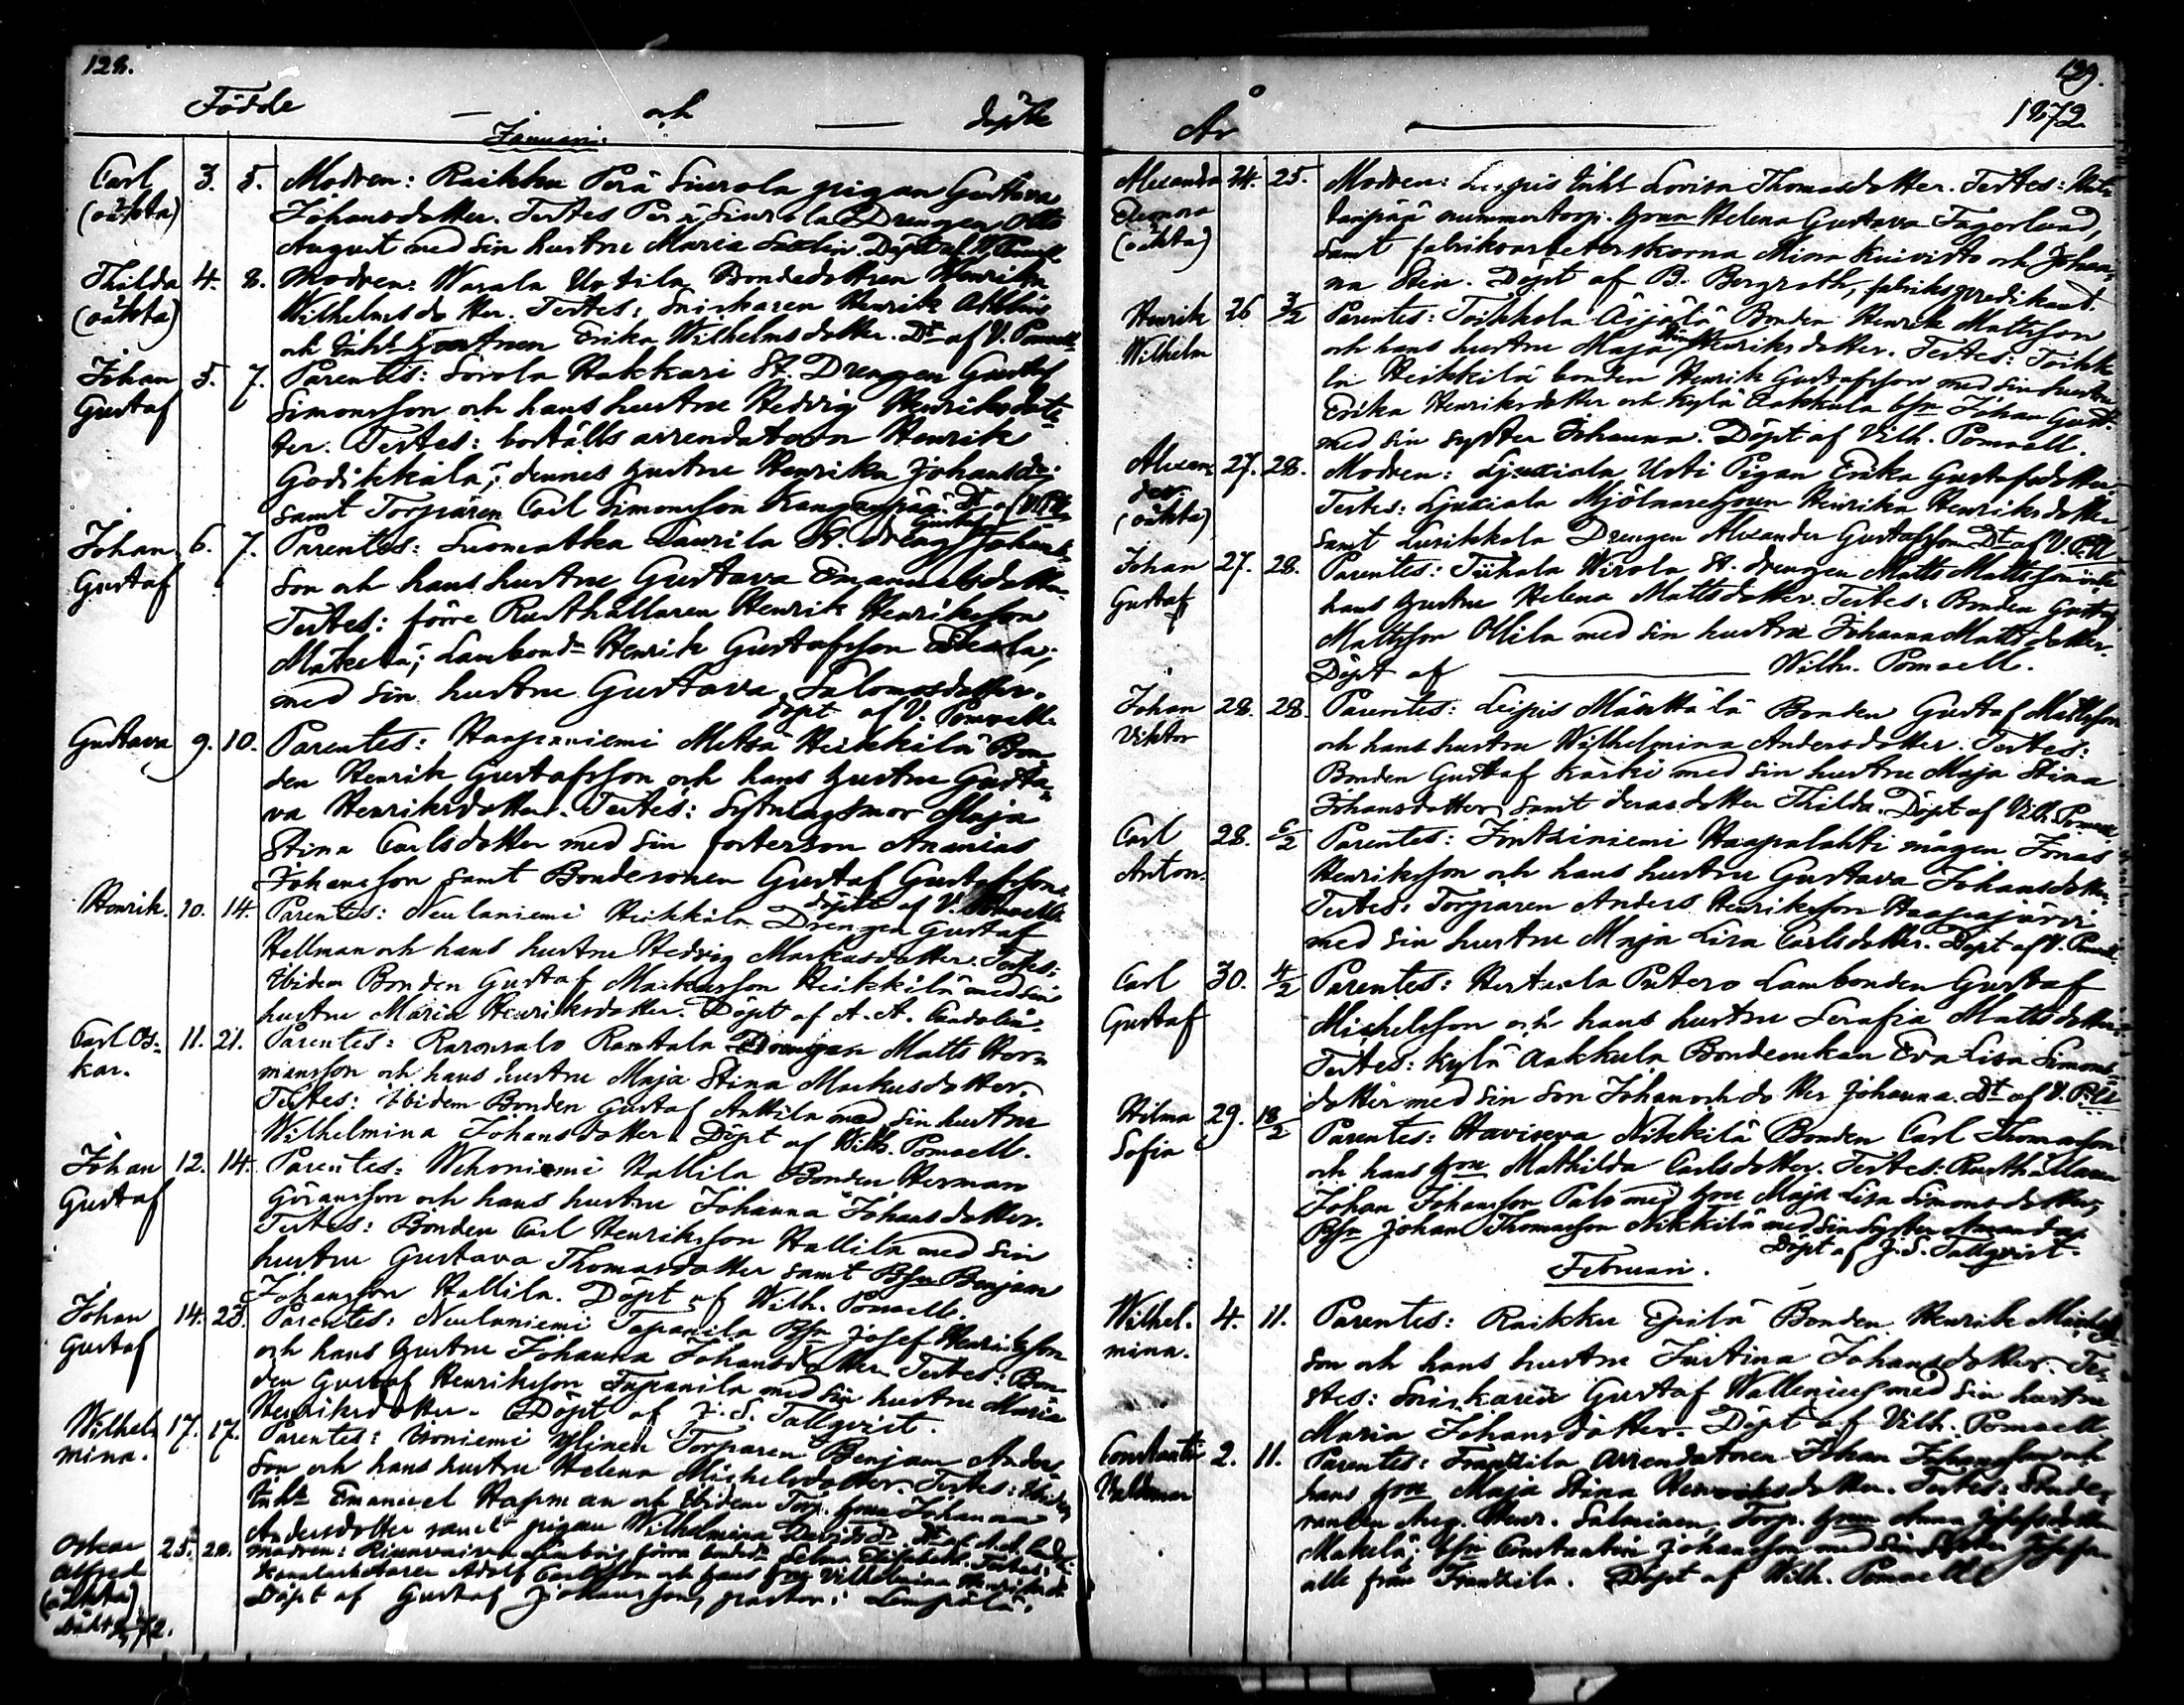 128.
Födde — och — döpte
Januari.
Carl 3. 5. Modren: Raikku Perä Siurola pigan Gustava
(oäkta) Johansdotter. Testes Perä Siurola Drengen Otto
August med sin hustru Maria Saxlin. Döpt af V. Pomoell
Thilda 4. 8. Modren: Warala Uotila Bondedottren Henrika
(oäkta) Wilhelmsdotter. Testes: Snickaren Henrik
och Inhs hustrun Erika Wilhelmsdotter. Dt af V. Pomoell
Johan 5. 7. Parentes: Sorola Hakkari St. Drengen Gustaf
Gustaf Simonsson och hans hustru Hedvig Henriksdot-
ter. Testes: boställs arrendatorn Henrik
Godikkala; dennes hustru Henrika Johansd.;
samt Torparen Carl Simonsson Kangaspää. Dt af V. P.
Johan 6. 7. Parentes: Suomatka Laurila St. dreng Gustaf Johans-
Gustaf son och hans hustru Gustava Emanuelsdotter
Testes: förre Rusthållaren Henrik Henriksson
Mäkelä; Lambonde Henrik Gustafsson
med sin hustru Gustava Salomosdotter.
döpt af V. Pomoell.
Gustava 9. 10. Parentes: Haapaniemi Metsä Heikkilä Bon-
den Henrik Gustafsson och hans hustru Gusta-
va Henriksdotter. Testes: Sytningsmor Maja
Stina Carlsdotter med sin fosterson Ananias
Johansson samt Bondesonen Gustaf Gustafsson.
döpt af V. Pomoell
Henrik. 10. 14. Parentes: Neulaniemi Heikkilä Drengen Gustaf
Hellman och hans hustru Hedvig Markusdotter. Testes:
Ibidem Bonden Gustaf Markusson Heikkilä med sin
hustru Maria Henriksdotter. Döpt af A. A. Candolin.
Carl Os- 11. 21. Parentes: Ravonsalo Rantala Drengen Matts Her-
kar. mansson och hans hustru Maja Stina Markusdotter.
Testes: Ibidem Bonden Gustaf Anttila med sin hustru
Wilhelmina Johansdotter. Döpt af Wilh. Pomoell.
Johan 12. 14. Parentes: Wehoniemi Hallila Bonden Herman
Gustaf Göransson och hans hustru Johanna Johansdotter.
Testes: Bonden Carl Henriksson Hallila med sin
hustru Gustava Thomasdotter samt Bsn Benjam
Johansson Hallila. Döpt af Wilh. Pomoell.
Johan 14. 23. Parentes: Neulaniemi Tapanila Bsn Josef Henriksson
Gustaf och hans hustru Johanna Johansdotter. Testes: Bon-
den Gustaf Henriksson Tapanila med sin hustru Maria
Henriksdotter. Döpt af J. S. Tallqvist.
Wilhel- 17. 17. Parentes: Isoniemi Ylinen Torparen Benjam Anders-
mina. son och hans hustru Helena Michelsdotter. Testes: Ibidem
Inhs Emanuel Hagman och Ibidem Torp. hun Johanna
Andersdotter samt pigan Wilhelmina Davidsdr
Oskar 25. Modren: förra Selma Elisabeth. Testes:
Alfred Adolf Carlsson och hans hru Vilhelmina
(oäkta) Döpt af Gustaf Johansson, pastor i Lempälä.
129.
År — 1872
Alexandra 24. 25. Modren: Leipis Inhs Lovisa Thomasdotter. Testes:
Eleonora nummertorp. hrun Helena Gustava Fagerlund,
(oäkta) samt fabriksarbeterskorna Mina Kuivisto och Johan-
na Stén. Döpt af B. Bergroth, fabrikspredikant.
Henrik 26 3/2 Parentes: Toikkola Äijälä Bonden Henrik Mattsson
Wilhelm och hans hustru Maja Stina Henriksdotter. Testes: Toikko-
la Heikkilä bonden Henrik Gustafsson med sin hustru
Erika Henriksdotter och Kylä Aakkula bsn Johan Gust.
med sin syster Johanna. Döpt af Vilh. Pomoell.
Alexan- 27. 28. Modren: Ljuxiala Uoti Pigan Erika Gustafsdotter
der Testes: Ljuxiala Mjölnarehrun Henrika Henriksdotter
(oäkta) samt Liuksiala Drengen Alexander Gustafsson Dt af V. P.
Johan 27. 28. Parentes: Tiihala Wirola St. drengen Matts Mattsson och
Gustaf hans hustru Helena Mattsdotter. Testes: Bonden Gustaf
Mattsson Ollila med sin hustru Johanna Mattsdotter.
Döpt af — Wilh. Pomoell.
Johan 28. 28. Parentes: Leipis Mänttälä Bonden Gustaf Mattsson
Viktor och hans hustru Wilhelmina Andersdotter. Testes:
Bonden Gustaf Kärki med sin hustru Maja Stina
Johansdotter, samt deras dotter Thilda. Döpt af Vilh. Pomoell
Carl 28. 6/2 Parentes: Jontziniemi Haapalahti mågen Jonas
Anton. Henriksson och hans hustru Gustava Johansdotter.
Testes: Torparen Anders Henriksson Haapajärvi
med sin hustru Maja Lisa Carlsdotter. Döpt af V. Pomoell.
Carl 30. 4/2 Parentes: Hertuala Putero Lambonden Gustaf
Gustaf Michelsson och hans hustru Serafia Mattsdotter.
Testes: Kylä Aakkula Bondenkan Eva Lisa Simons-
dotter med sin son Johan och dotter Johanna. Dt af V. P.
Hilma 29. 18/2 Parentes: Havisevva Nikkilä Bonden Carl Thomasson
Sofia och hans hru Mathilda Carlsdotter. Testes: Rusthållaren
Johan Johansson Palo med hru Maja Lisa Simonsdotter,
Bsn Johan Thomasson Nikkilä med sin syster Amanda.
Döpt af J. S. Tallqvist.
Februari.
Wilhel- 4. 11. Parentes: Raikku Epilä Bonden Henrik Michels-
mina. son och hans hustru Justina Johansdotter. Te-
stes: Snickaren Gustaf Wallenius med sin hustru
Maria Johansdotter. Döpt af Vilh. Pomoell
Constantin 2. 11. Parentes: Frantzila Arrendatoren Johan Johansson och
Valdemar hans hru Maja Stina Henriksdotter. Testes: Stude-
randen Aug. Henr. Salminen, Torp. hrun Anna Josefsdotter
Mäkelä; bsn Constantin Johansson med sin syster
alla från Frantzila. Döpt af Wilh. Pomoell